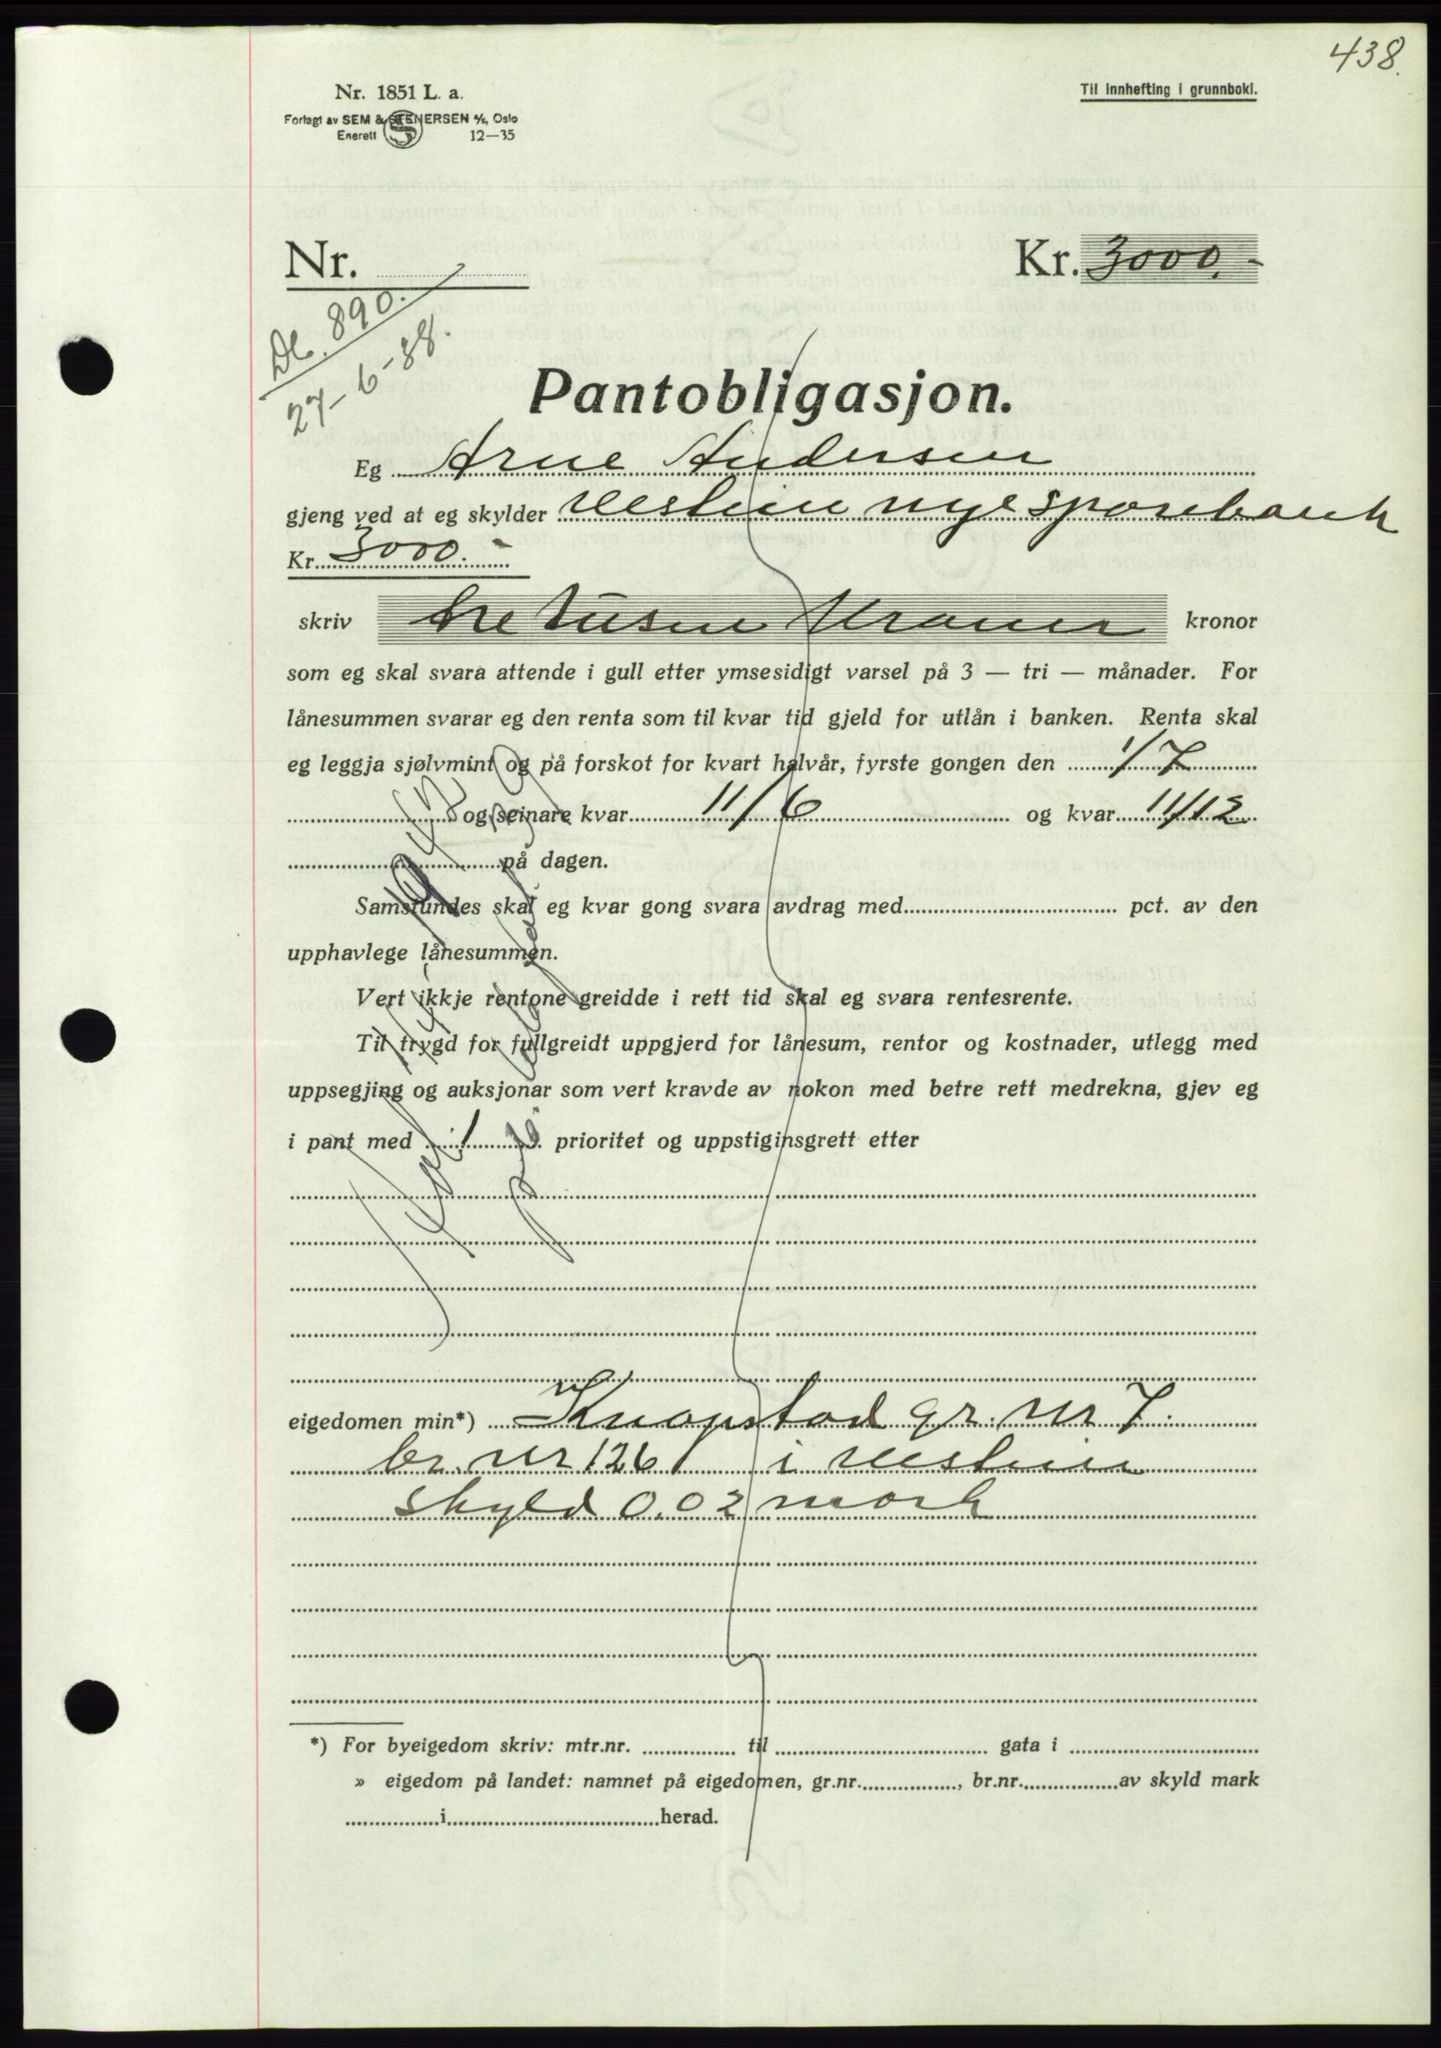 438.
Nr. 1851 L. a.
Forlagt av SEM & STENERSEN A/S, Oslo
Enerett 12—35
Til innhefting i grunnboki.
Nr.
Kr. 3000.-
Db. 890.
27-6-38.
Pantobligasjon.
Eg Arne Andersen
gjeng ved at eg skylder nye sparebank
Kr. 3000.-
skriv tre tusen kroner kronor
som eg skal svara attende i gull etter ymsesidigt varsel på 3 — tri — månader. For
lånesummen svarar eg den renta som til kvar tid gjeld for utlån i banken. Renta skal
eg leggja sjølvmint og på forskot for kvart halvår, fyrste gongen den 1/7
og seinare kvar 11/6 og kvar 11/12
på dagen.
Samstundes skal eg kvar gong svara avdrag med pct. av den
upphavlege lånesummen.
Vert ikkje rentone greidde i rett tid skal eg svara rentesrente.
Til trygd for fullgreidt uppgjerd for lånesum, rentor og kostnader, utlegg med
uppsegjing og auksjonar som vert kravde av nokon med betre rett medrekna, gjev eg
i pant med 1 prioritet og uppstiginsgrett etter
eigedomen min*) Knapstad gr. nr 7.
br. nr 126 i
skyld 0.02 mark
*) For byeigedom skriv: mtr.nr. til gata i
» eigedom på landet: namnet på eigedomen, gr.nr. , br.nr. av skyld mark
i herad.